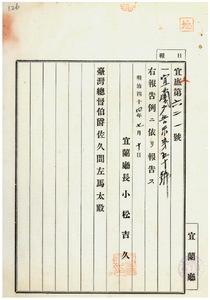 126
日報
宜庶第六二一號
右報告例ニ依リ報告ス
明治四十四年七月十日
宜蘭廳長小松吉久
臺灣總督伯爵佐久間左馬太殿
宜蘭廳